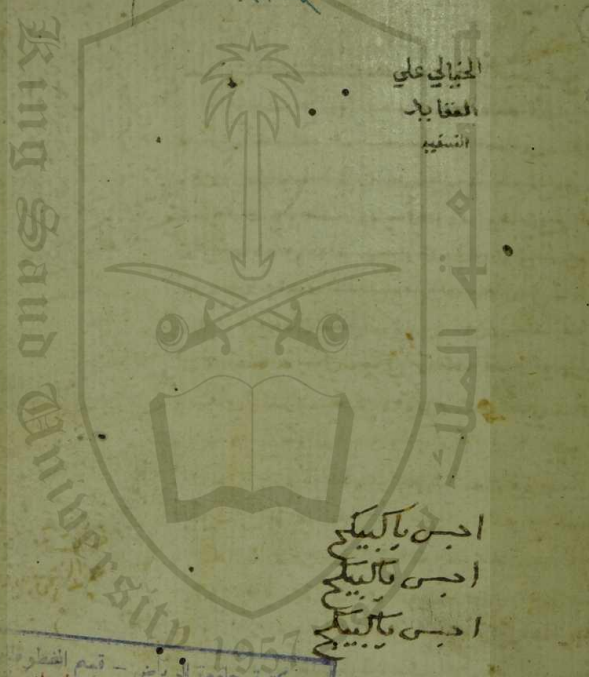 الخيالي علي
العقايد
النسفيه
احبس ياكبيكج
احبس ياكبيكج
احبس ياكبيكج
King Saud University
1957
جامعة الرياض - قسم المخطوطات